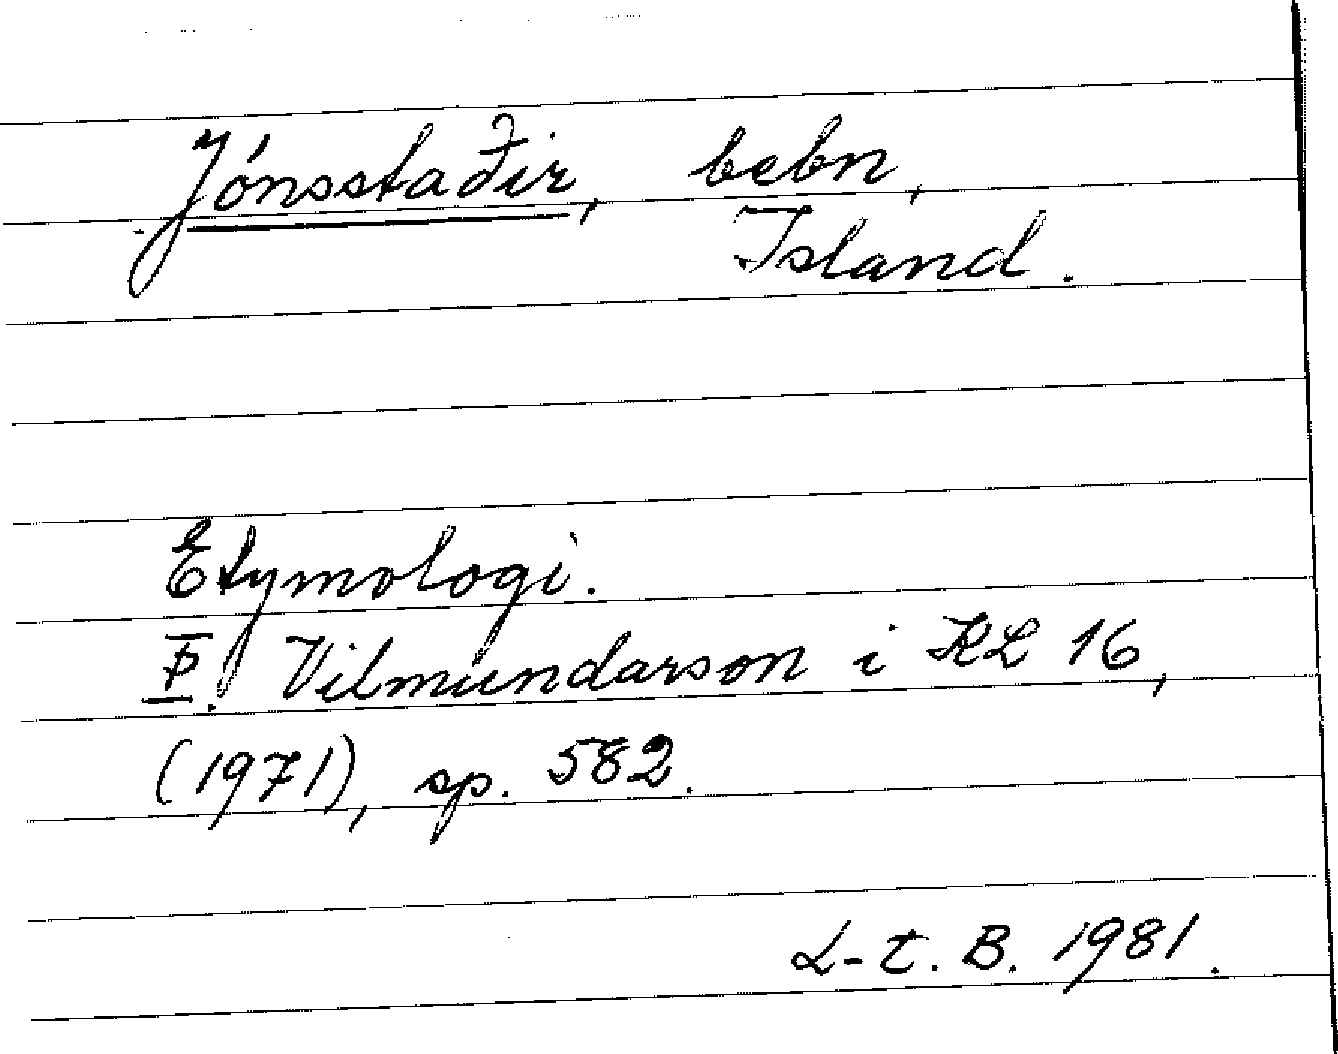 Jónsstaðir, bebn,
Island.
Etymologi.
Þ. Vilmundarson i KL 16,
(1971), sp. 582.
L-t. B. 1981.